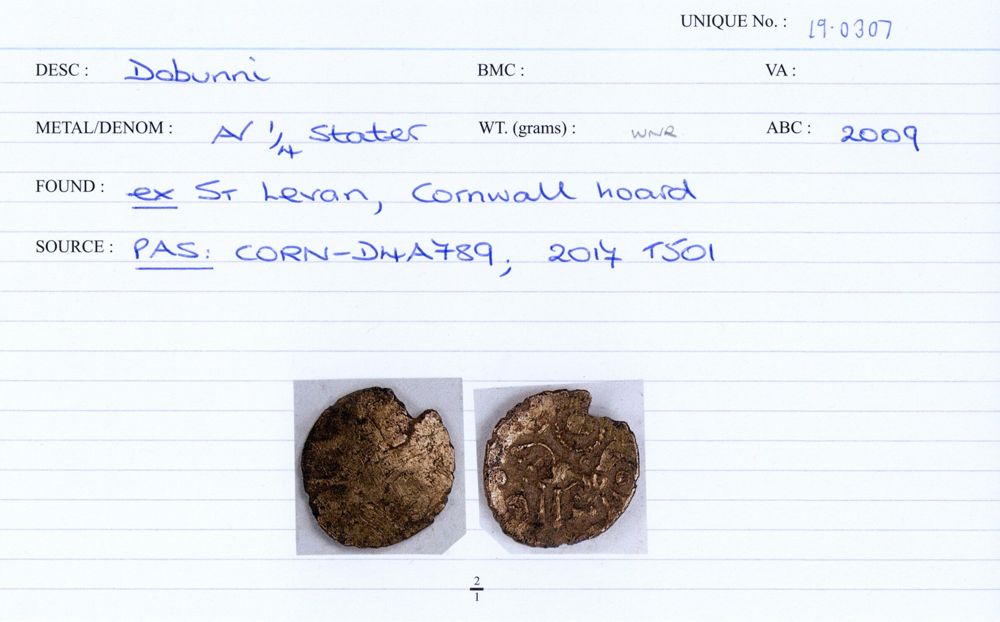 UNIQUE No. : 19.0307
DESC : Dobunni BMC : VA :
METAL/DENOM : AV 1/4 Stater WT. (grams) : WNR ABC : 2009
FOUND : ex St Levan, Cornwall hoard
SOURCE : PAS: CORN-D4A789; 2017 T501
2
1